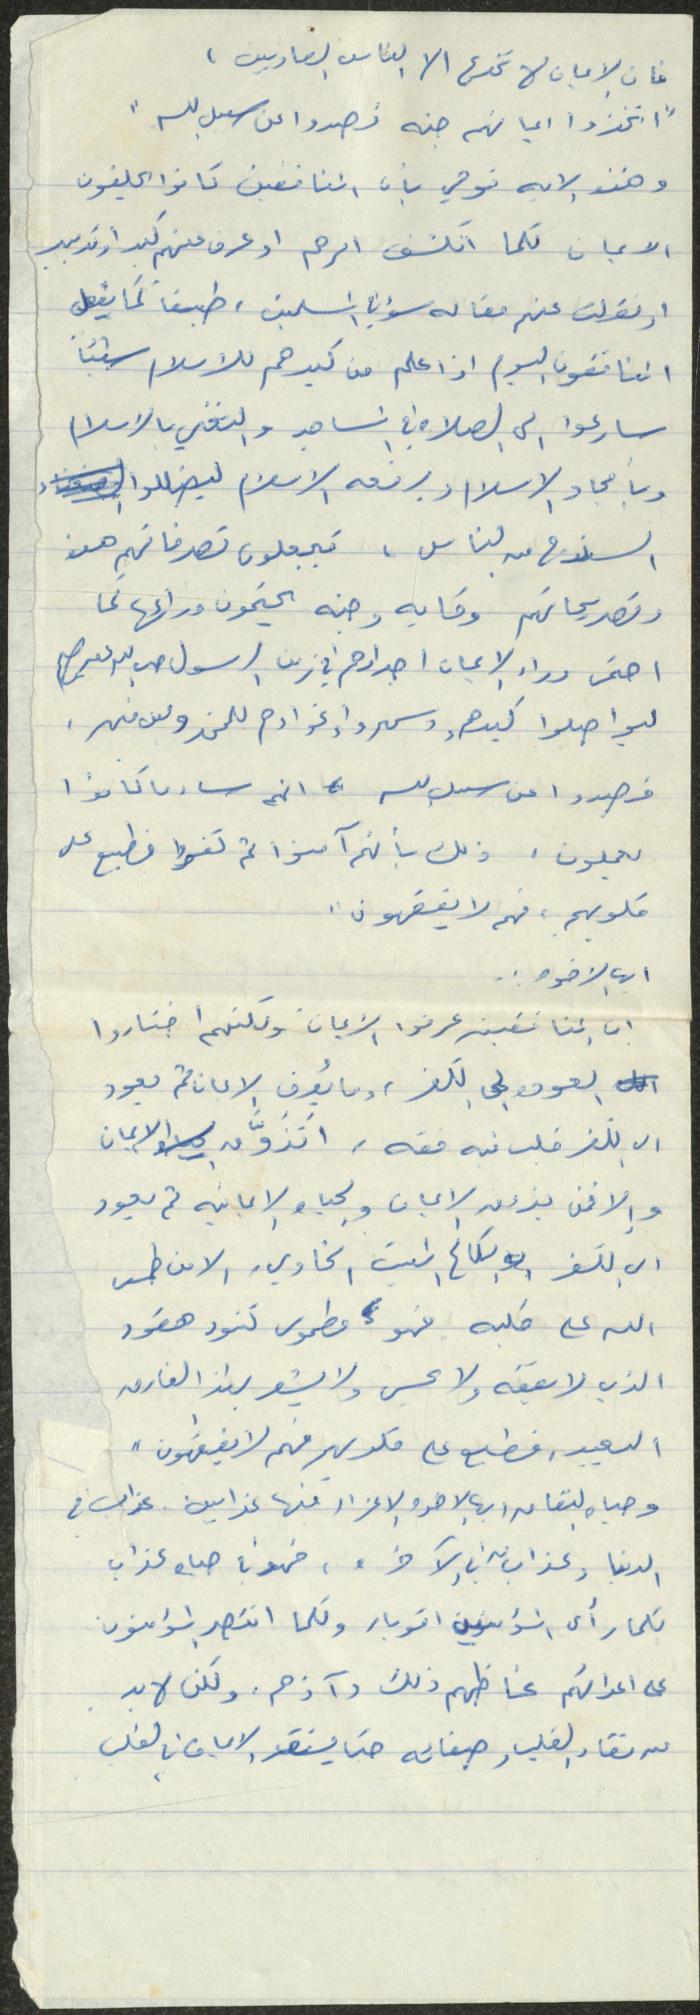 فان الايمان لا تخدع الا الناس الصادقين ،
"اتخذوا ايمانهم جنه فصدوا عن سبيل الله"
وهذه الايه توحي بأن المنافقين كانوا يحلفون
الايمان كلما انكشف امرهم او عرف عنهم كيد او تدبير
او نقلت عنهم مقاله سوء في المسلمين ، طبعا كما يفعل
المنافقون اليوم اذا علم من كيدهم للاسلام شيئا
سارعوا الى الصلاه في المساجد والتغني بالاسلام
وبأمجاد الاسلام وبرفعه الاسلام ليضللوا
السذج من الناس ، فيجعلون تصرفاتهم هذه
وتصريحاتهم وقايه وجنه يحتمون وراءها كما
احتمى وراء الايمان اجدادهم في زمن الرسول صلى الله عليه وسلم
ليواصلوا كيدهم و اغواءهم للمخدوعين فيهم ،
فصدوا عن سبيل الله ، انهم ساء ما كانوا
يعملون ، ذلك بأنهم آمنوا ثم كفروا فطبع على
قلوبهم ، فهم لا يفقهون"
ايها الاخوه ..
ان المنافقين عرفوا الايمان ولكنهم اختاروا
العوده الى الكفر ، وما يعرف الايمان ثم يعود
الى الكفر قلب فيه فقه ، او تذوق الايمان
والا فمن يذوق الايمان والحياه الايمانيه ثم يعود
الى الكفر الكالح الميت الخاوي ، الا من طمس
الله على قلبه فهو مطموس كنود حقود
الذي لا يفقه ولا يحس ولا يشعر بهذا الفارق
البعيد ، فطبع على قلوبهم فهم لا يفقهون"
وحياه النفاق ايها الاخوه الاعزاء فيها عذابين . عذاب في
الدنيا وعذاب في الآخره ، فهو في حياه عذاب
كلما رأى المؤمنين اقوياء وكلما انتصر المؤمنون
على اعدائهم غاظهم ذلك وآذاهم . ولكن لا بد
من نقاء القلب وصفائه حتى يستقر الايمان في القلب